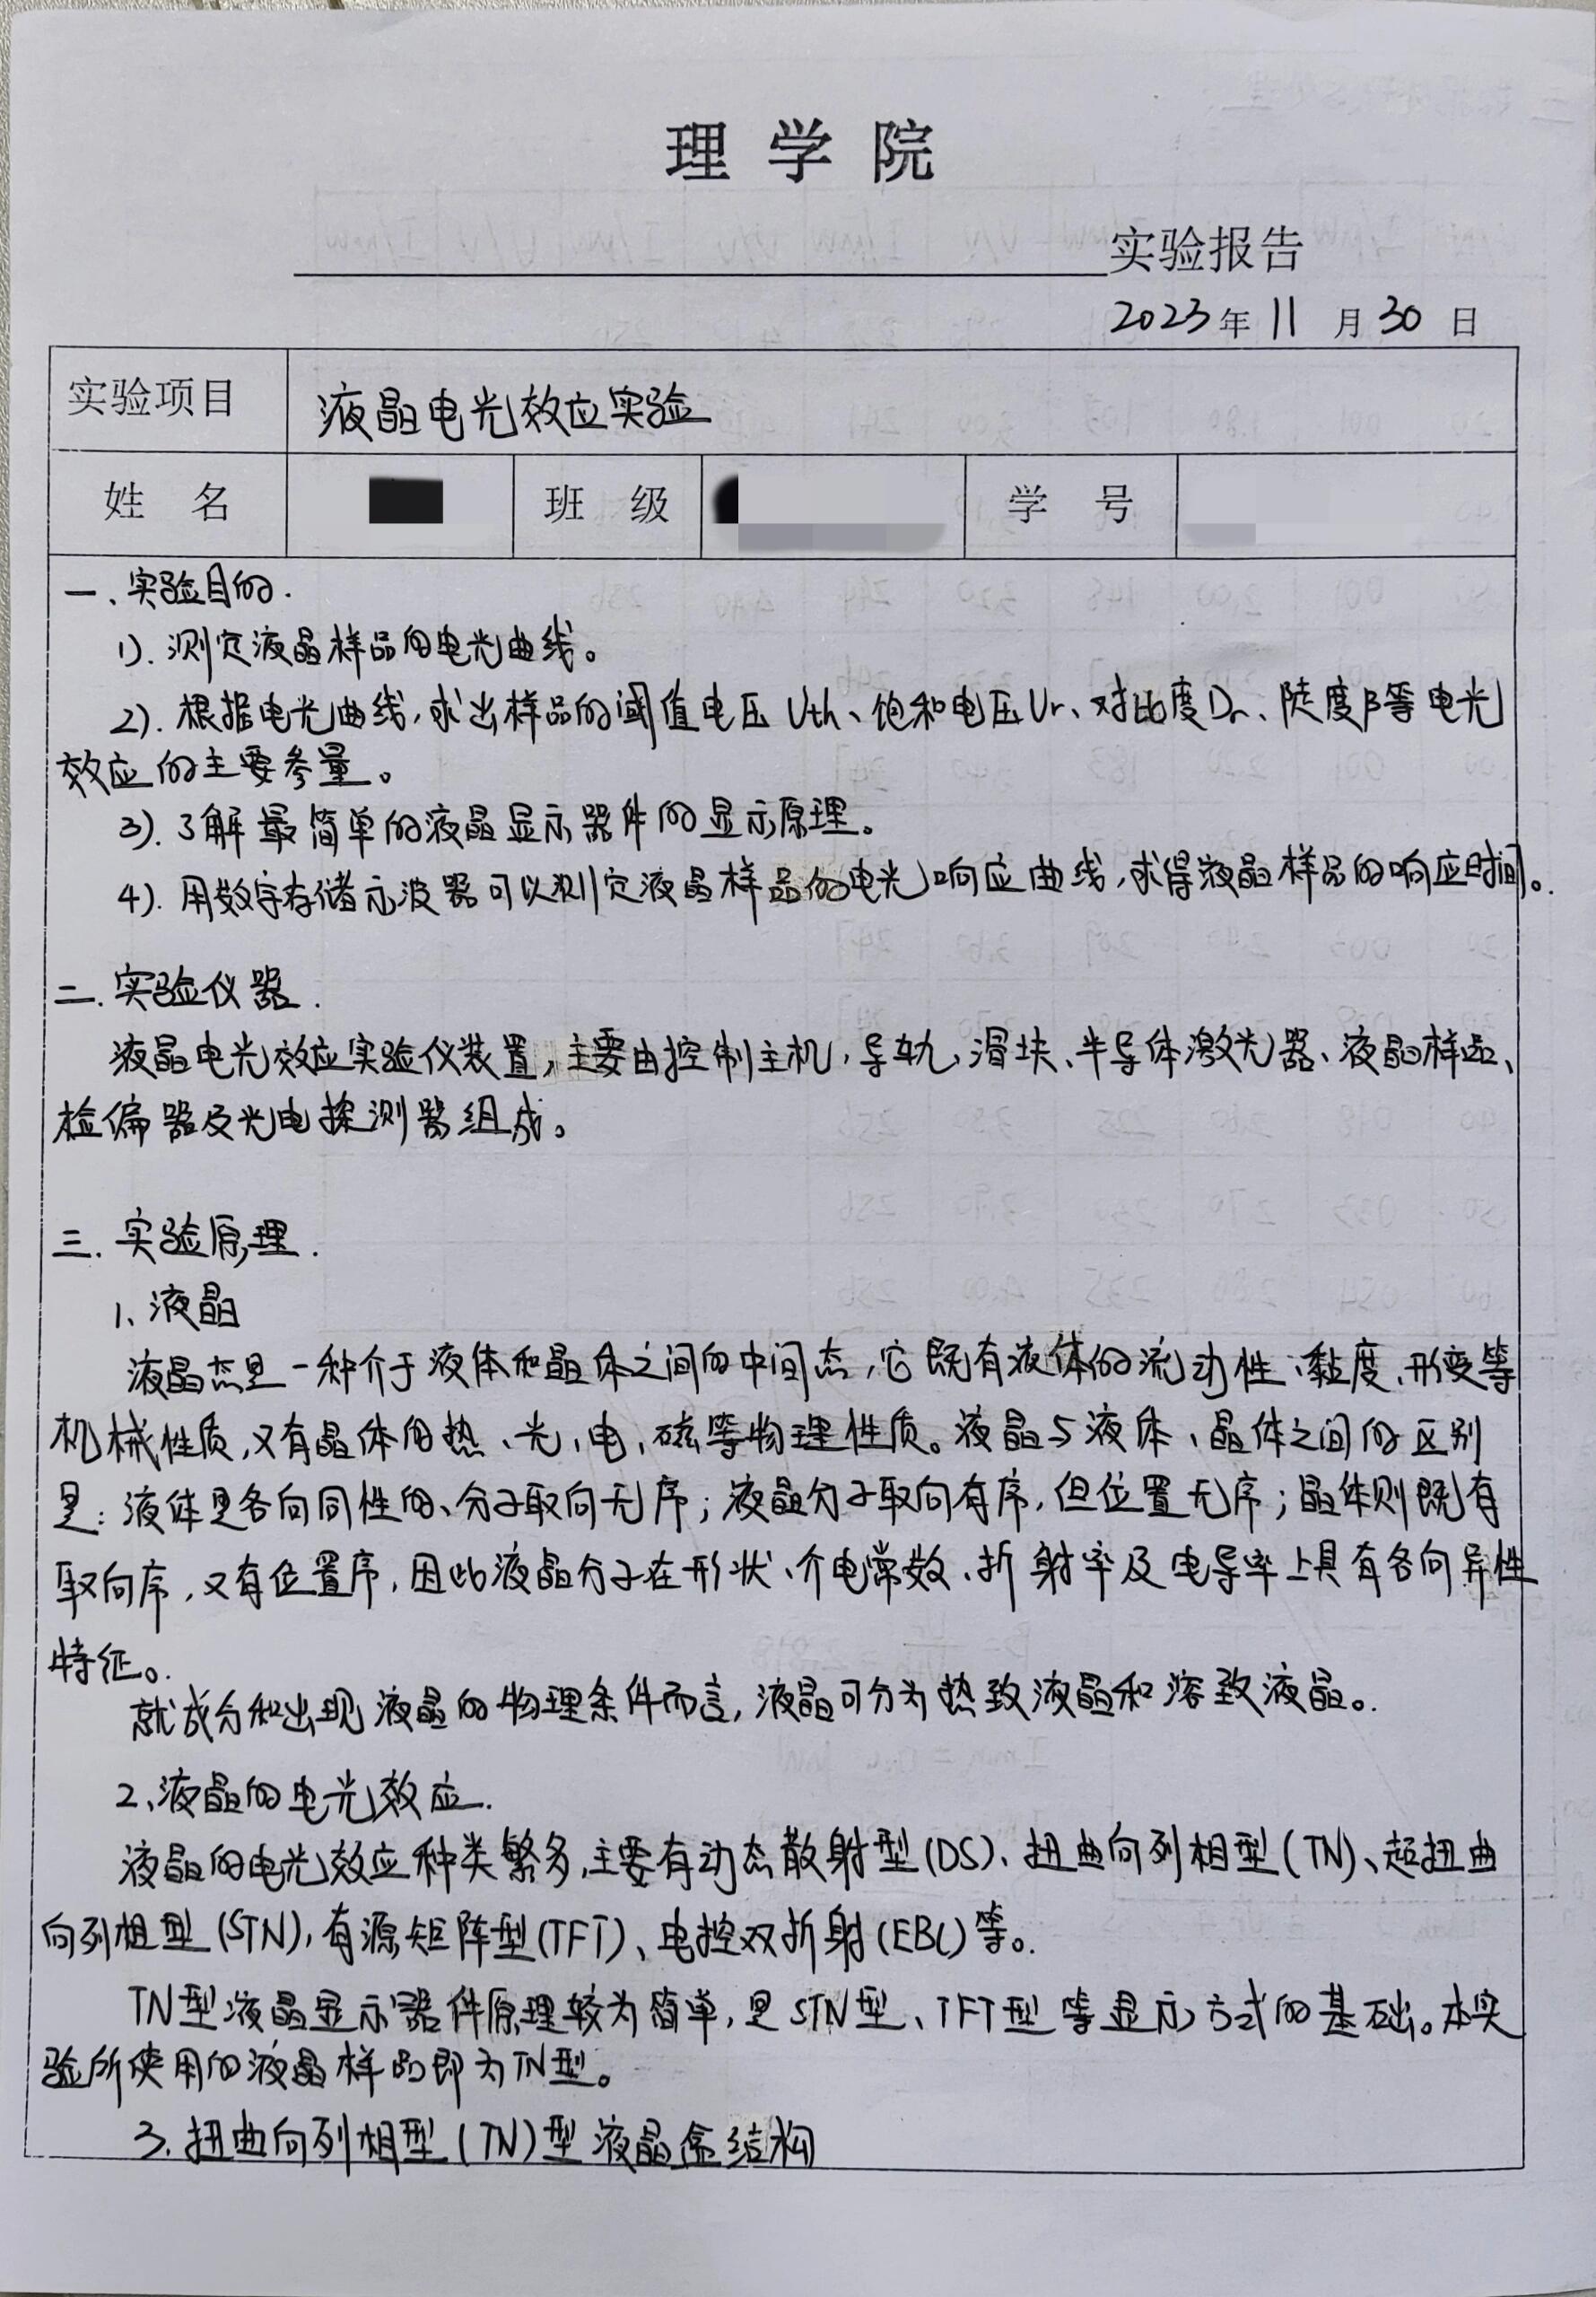 理学院
实验报告
2023年11月30日
实验项目 液晶电光效应实验
姓名 班级 学号
一、实验目的.
1). 测定液晶样品的电光曲线。
2). 根据电光曲线,求出样品的阈值电压Uth、饱和电压Ur、对比度Dr、陡度β等电光
效应的主要参量。
3). 了解最简单的液晶显示器件的显示原理。
4). 用数字存储示波器可以测定液晶样品的电光响应曲线,求得液晶样品的响应时间。
二. 实验仪器.
液晶电光效应实验仪装置,主要由控制主机、导轨、滑块、半导体激光器、液晶样品、
检偏器及光电探测器组成。
三. 实验原理.
1、液晶
液晶态是一种介于液体和晶体之间的中间态,它既有液体的流动性、黏度、形变等
机械性质,又有晶体的热、光、电、磁等物理性质。液晶与液体、晶体之间的区别
是:液体是各向同性的、分子取向无序;液晶分子取向有序,但位置无序;晶体则既有
取向序,又有位置序,因此液晶分子在形状、介电常数、折射率及电导率上具有各向异性
特征。
就成分和出现液晶的物理条件而言,液晶可分为热致液晶和溶致液晶。
2、液晶的电光效应.
液晶的电光效应种类繁多,主要有动态散射型(DS)、扭曲向列相型(TN)、超扭曲
向列相型(STN),有源矩阵型(TFT)、电控双折射(EBC)等。
TN型液晶显示器件原理较为简单,是STN型、TFT型等显示方式的基础。本实
验所使用的液晶样品即为TN型。
3. 扭曲向列相型(TN)型液晶盒结构